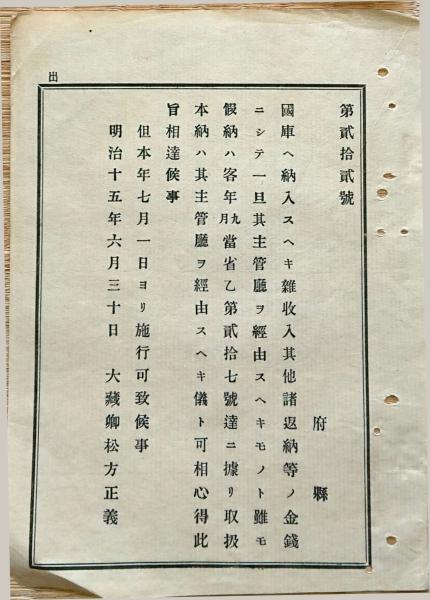 出
第貳拾貳號
府縣
國庫ヘ納入スヘキ雜收入其他諸返納等ノ金錢
ニシテ一旦其主管廳ヲ經由スヘキモノト雖モ
假納ハ客年九月當省乙第貳拾七號達ニ據リ取扱
本納ハ其主管廳ヲ經由スヘキ儀ト可相心得此
旨相達候事
但本年七月一日ヨリ施行可致候事
明治十五年六月三十日 大藏卿松方正義